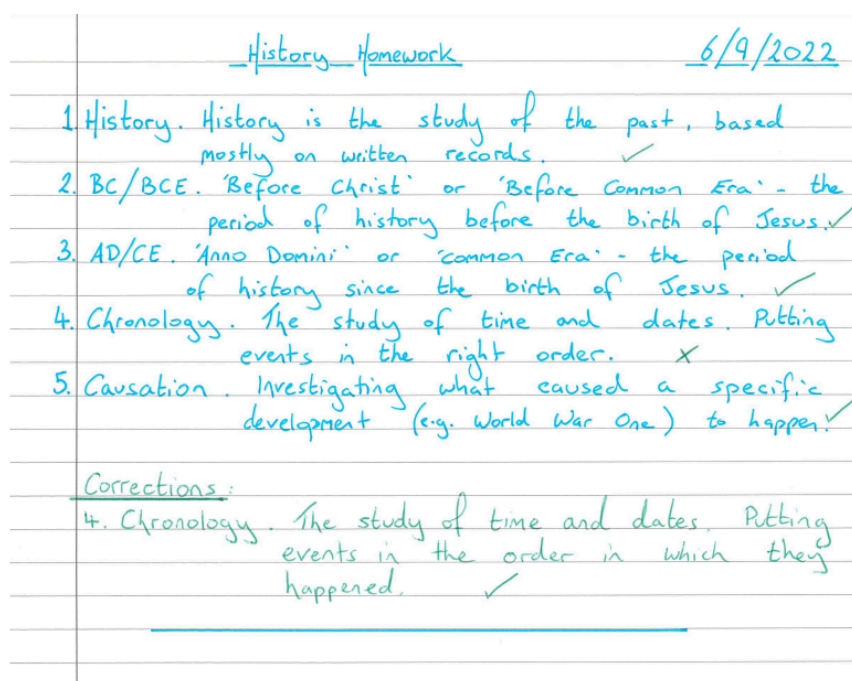 History Homework 6/9/2022
1. History. History is the study of the past, based
mostly on written records. ✓
2. BC/BCE. 'Before Christ' or 'Before Common Era' - the
period of history before the birth of Jesus. ✓
3. AD/CE. 'Anno Domini' or 'Common Era' - the period
of history since the birth of Jesus. ✓
4. Chronology. The study of time and dates. Putting
events in the right order. x
5. Causation. Investigating what caused a specific
development (e.g. World War One) to happen. ✓
Corrections:
4. Chronology. The study of time and dates. Putting
events in the order in which they
happened. ✓